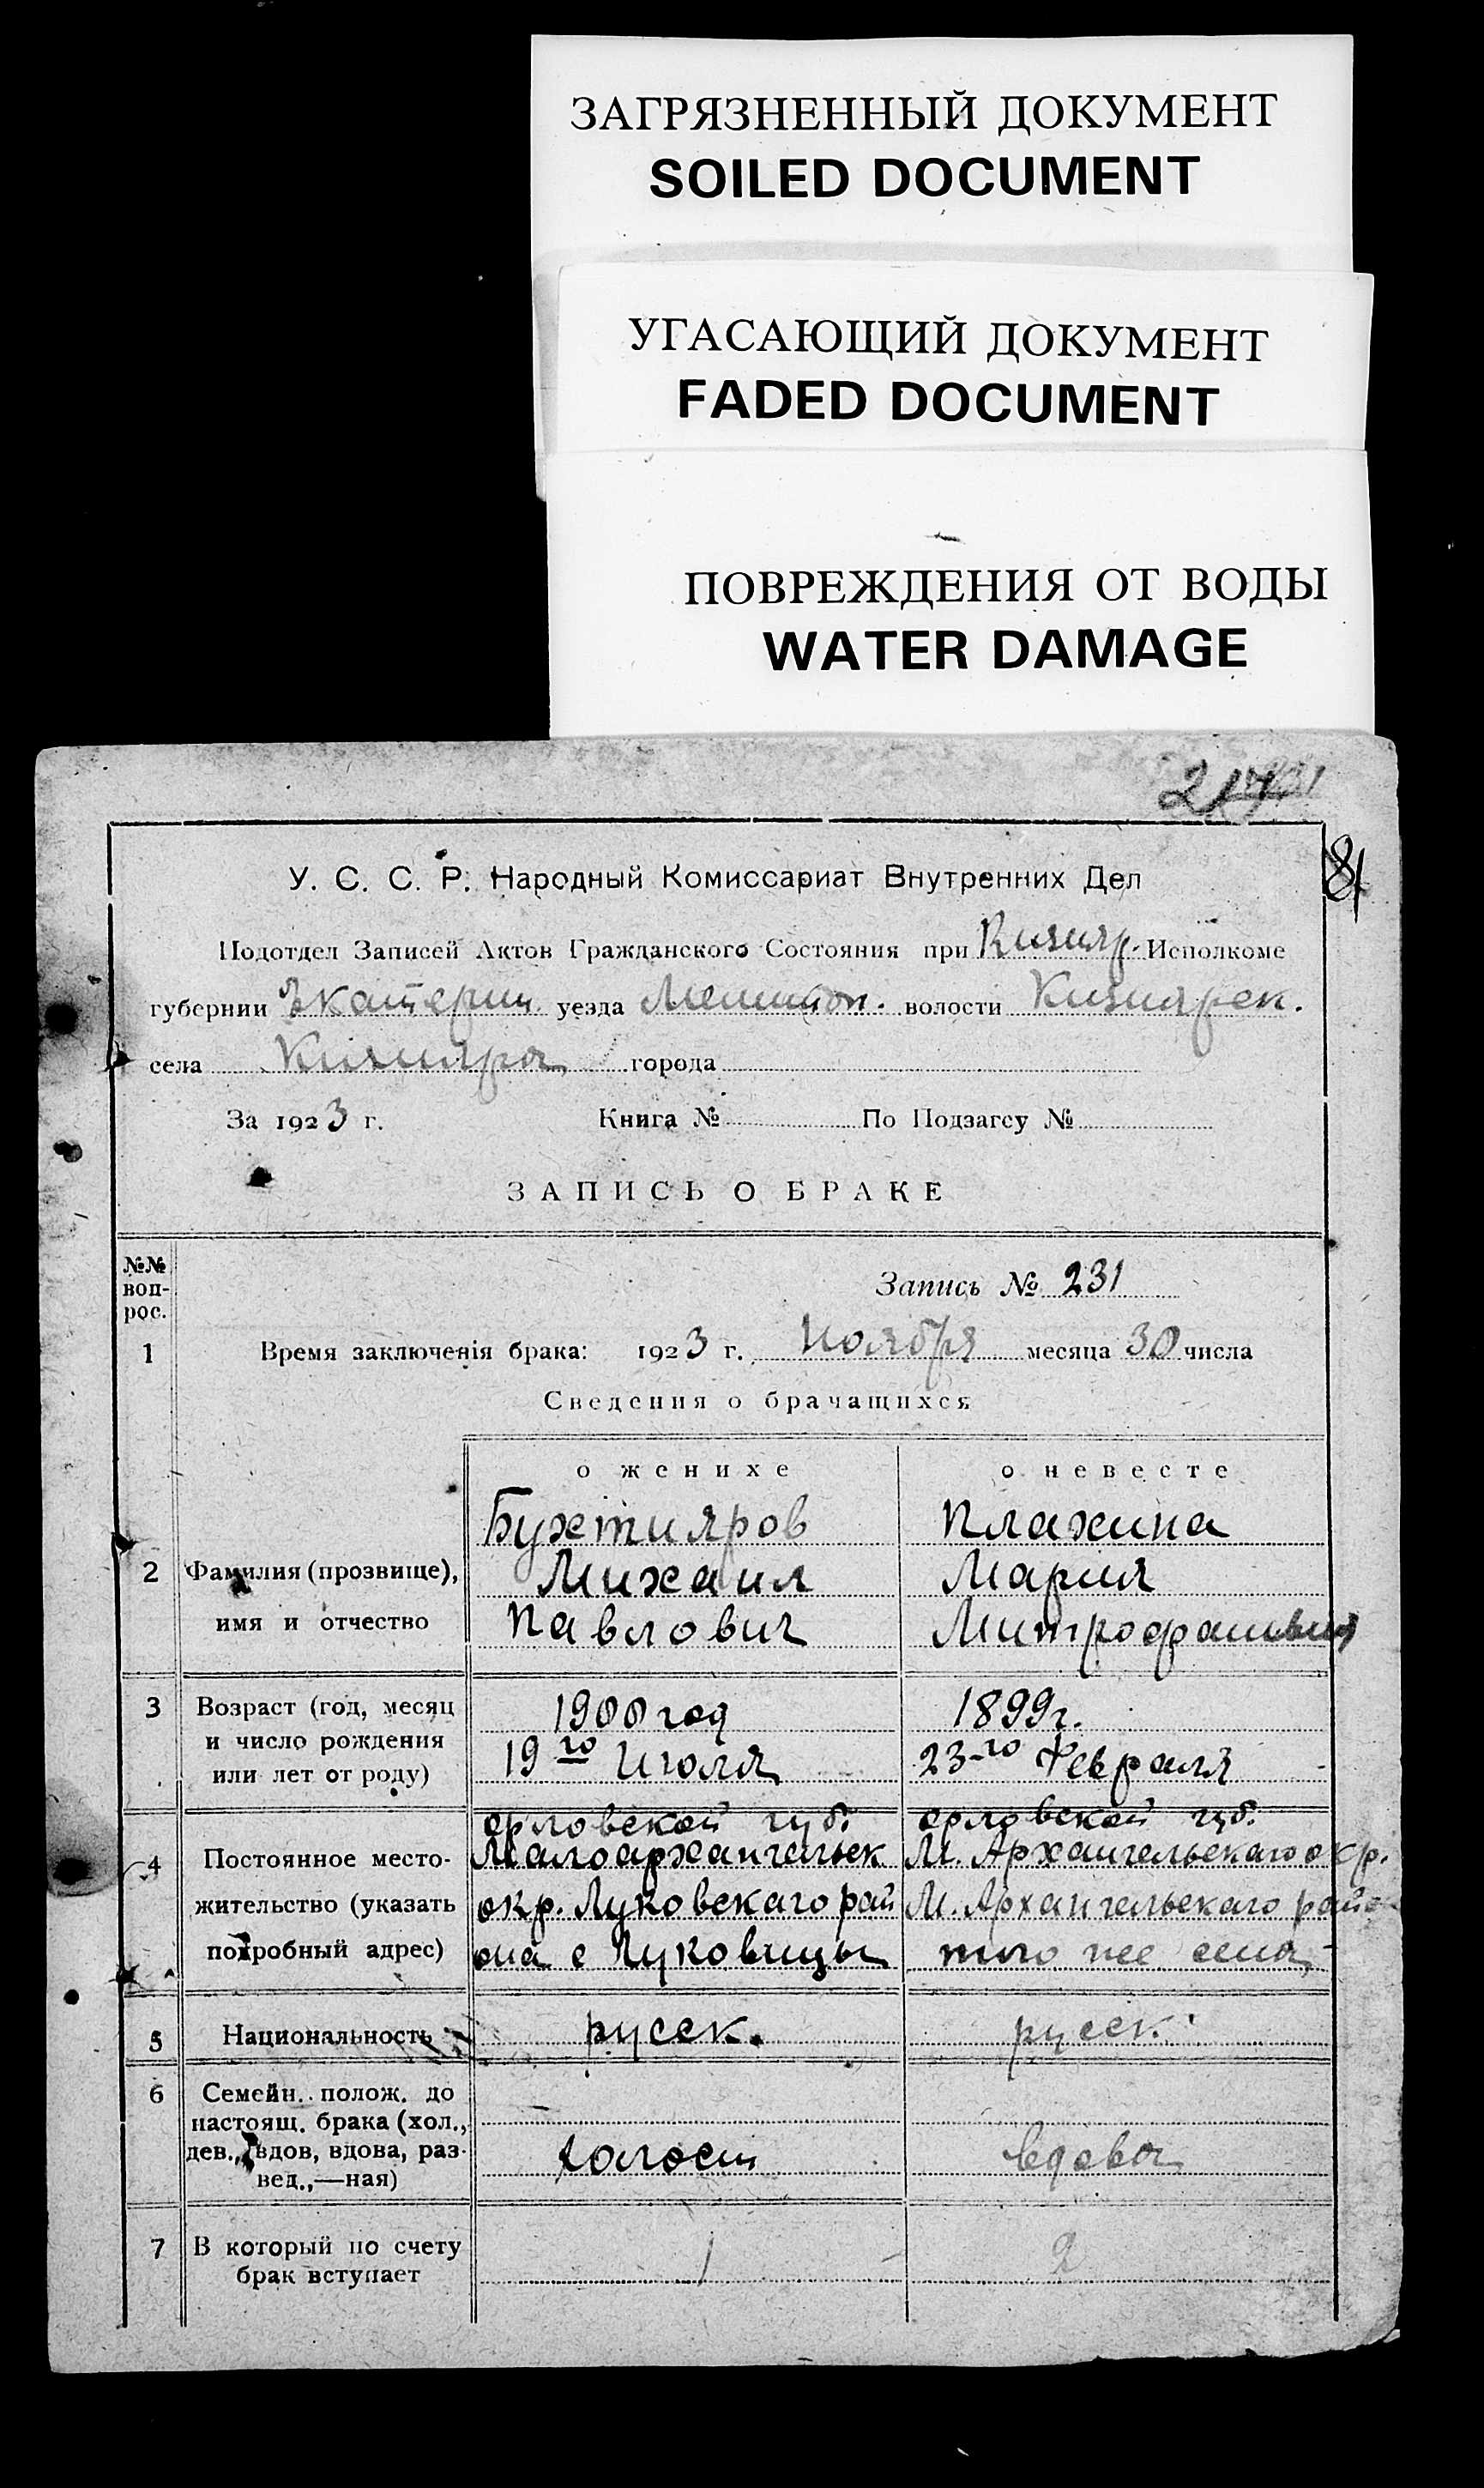 ЗАГРЯЗНЕННЫЙ ДОКУМЕНТ
SOILED DOCUMENT
УГАСАЮЩИЙ ДОКУМЕНТ
FADED DOCUMENT
ПОВРЕЖДЕНИЯ ОТ ВОДЫ
WATER DAMAGE
81
У. С. С. Р. Народный Комиссариат Внутренних Дел
Подотдел Записей Актов Гражданского Состояния при Кизияр. Исполкоме
губернии Екатерин. уезда Мелитоп. волости Кизиярск.
села Кизияра города
За 1923 г. Книга № По Подзагсу №
ЗАПИСЬ О БРАКЕ
№№ воп-рос.
Запись № 231
1 Время заключенія брака: 1923 г. Ноября месяца 30 числа
Сведения о брачащихся
о женихе о невесте
Бухтияров Плахина
2 Фамилия (прозвище), Михаил Мария
имя и отчество Павлович
3 Возраст (год, месяц 1900 год 1899 г.
и число рождения 19го Июля 23-го Февраля
или лет от роду)
орловской губ. орловской губ.
4 Постоянное место- Малоархангельск М. Архангельскаго окр.
жительство (указать окр. Луковскаго рай М. Архангельскаго район
подробный адрес) она с Луковицы того же села
5 Национальность русск. русск.
6 Семейн. полож. до
настоящ. брака (хол.,
дев., вдов, вдова, раз- холост вдова
вед.,—ная)
7 В который по счету 1 2
брак вступает